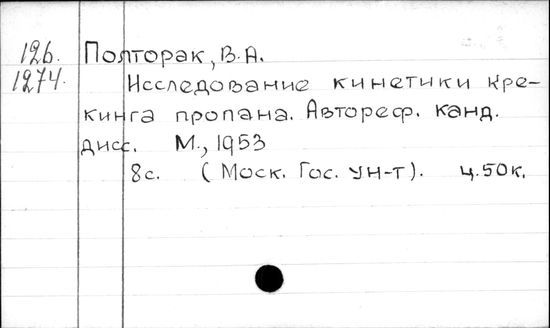 126. Полторак, В.А.
1274. Исследование кинетики кре-
кинга пропана. Автореф. канд.
дисс. М., 1953
8с. (Моск. Гос. ун-т). ц.50к.